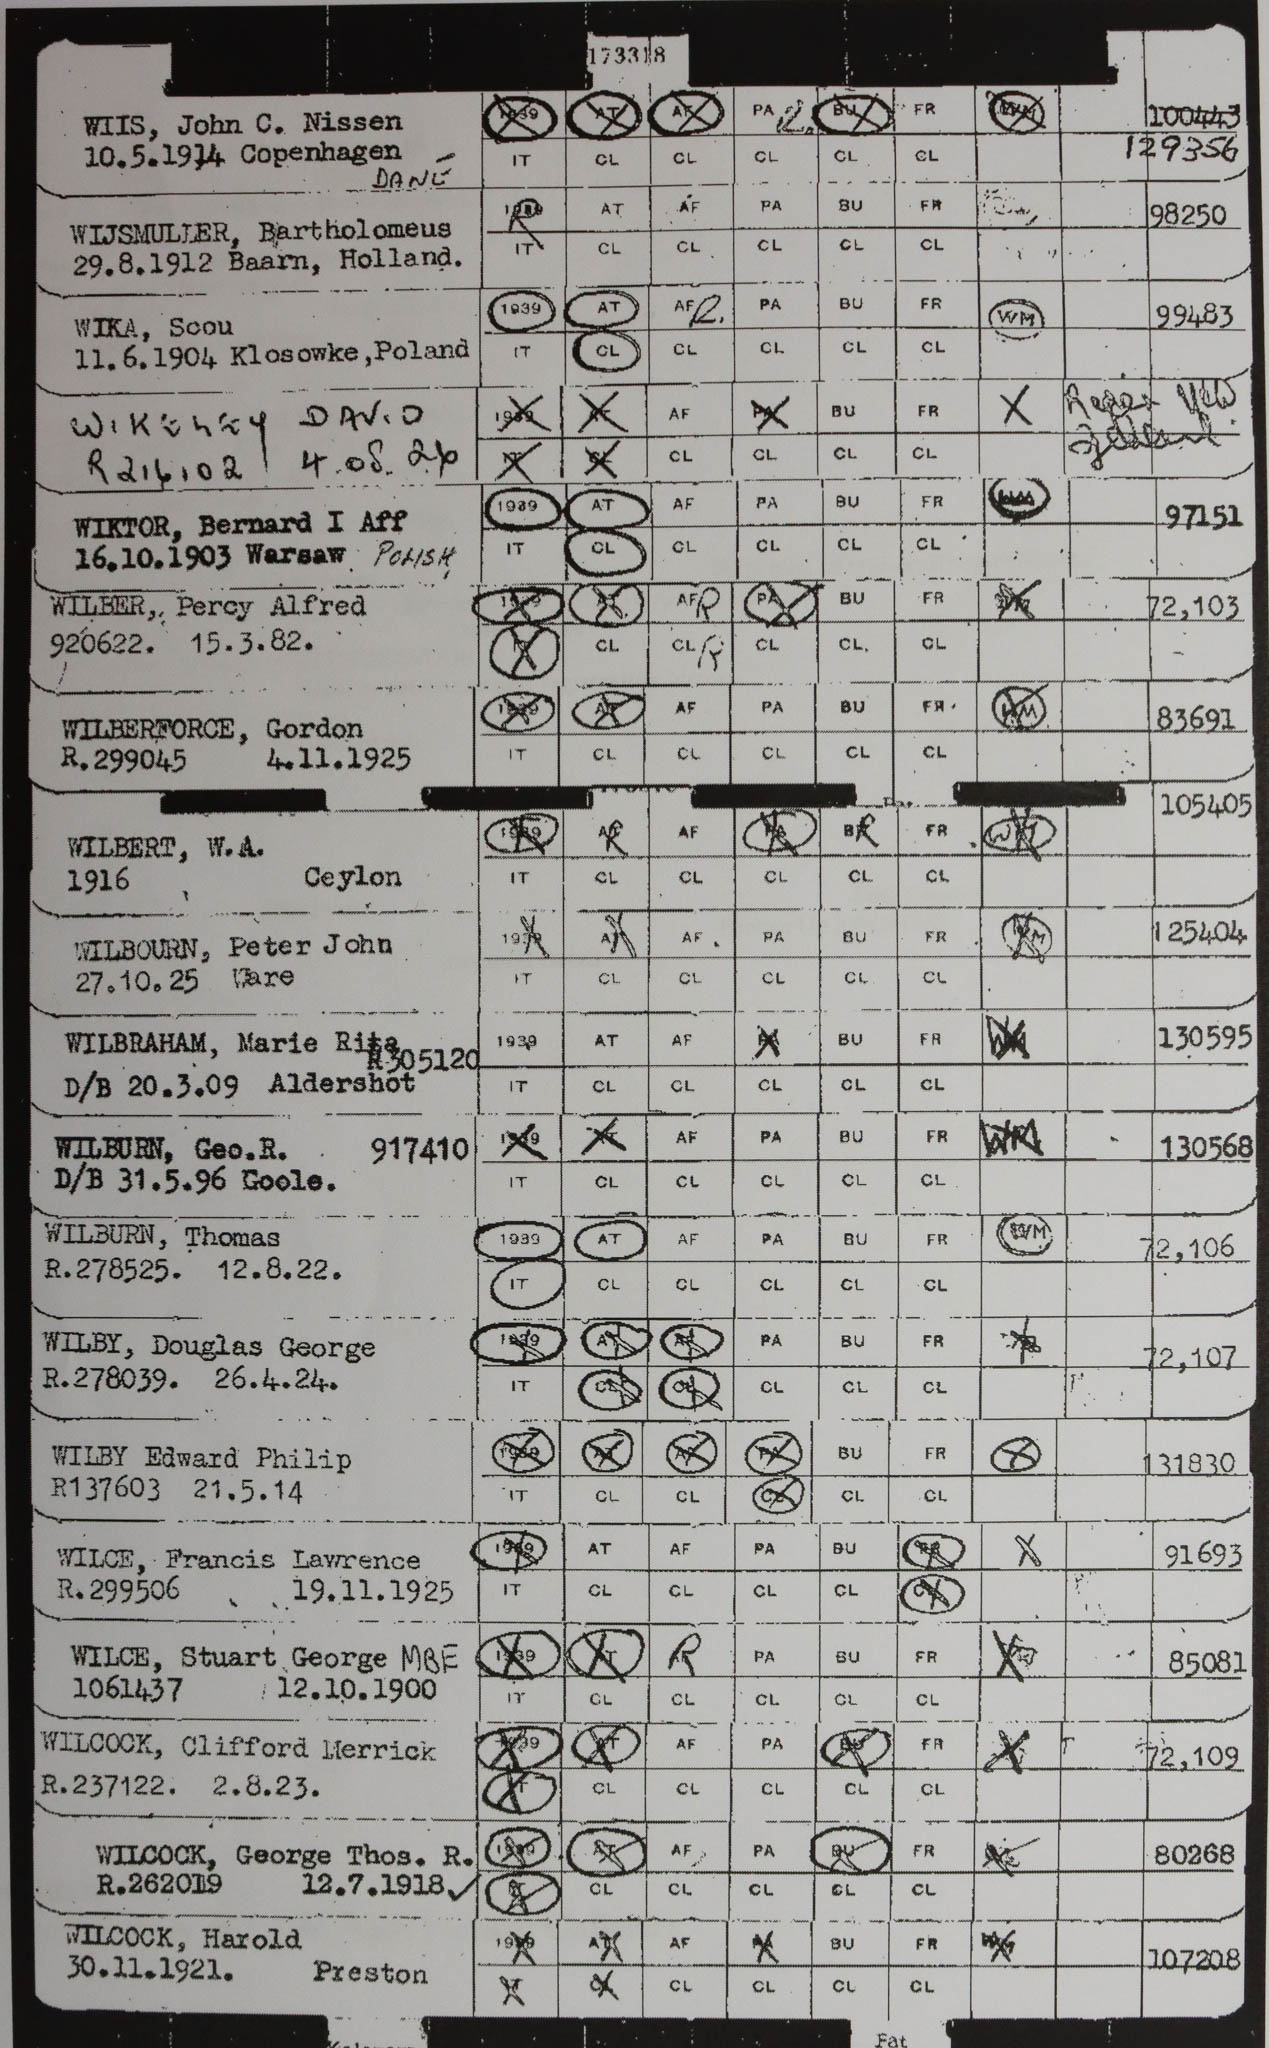 173318
WIIS, John C. Nissen 1939 AT AF PA R. BU FR WM 100443
10.5.1914 Copenhagen IT CL CL CL CL CL 129356
DANE
WIJSMULLER, Bartholomeus 1939 R AT AF PA BU FR 98250
29.8.1912 Baarn, Holland. IT CL CL CL CL CL
WIKA, Scou 1939 AT AF R. PA BU FR WM 99483
11.6.1904 Klosowke,Poland IT CL CL CL CL CL
WIKELEY DAVID 1939 AT AF PA BU FR X
R216102 4.08.26 IT CL CL CL CL CL
WIKTOR, Bernard I Aff 1939 AT AF PA BU FR WM 97151
16.10.1903 Warsaw POLISH IT CL CL CL CL CL
WILBER, Percy Alfred 1939 AT AF R PA BU FR WM 72,103
920622. 15.3.82. IT CL CL R CL CL. CL
WILBERFORCE, Gordon 1939 AT AF PA BU FR WM 83691
R.299045 4.11.1925 IT CL CL CL CL CL
105405
WILBERT, W.A. 1939 AT R AF PA BU R FR WM
1916 Ceylon IT CL CL CL CL CL
WILBOURN, Peter John 1939 AT AF PA BU FR WM 125404
27.10.25 Ware IT CL CL CL CL CL
WILBRAHAM, Marie Rita 1939 AT AF PA BU FR WM 130595
R305120
D/B 20.3.09 Aldershot IT CL CL CL CL CL
WILBURN, Geo.R. 917410 1939 AT AF PA BU FR WM 130568
D/B 31.5.96 Goole. IT CL CL CL CL CL
WILBURN, Thomas 1939 AT AF PA BU FR WM 72,106
R.278525. 12.8.22. IT CL CL CL CL CL
WILBY, Douglas George 1939 AT AF PA BU FR 72,107
R.278039. 26.4.24. IT CL CL CL CL CL
WILBY Edward Philip 1939 AT AF PA BU FR X 131830
R137603 21.5.14 IT CL CL CL CL CL
WILCE, Francis Lawrence 1939 AT AF PA BU FR X 91693
R.299506 19.11.1925 IT CL CL CL CL CL
WILCE, Stuart George MBE 1939 AT R PA BU FR 85081
1061437 12.10.1900 IT CL CL CL CL CL
WILCOCK, Clifford Merrick 1939 AT AF PA BU FR X 72,109
R.237122. 2.8.23. IT CL CL CL CL CL
WILCOCK, George Thos. R. 1939 AT AF PA BU FR 80268
R.262019 12.7.1918 IT CL CL CL CL CL
WILCOCK, Harold 1939 AT AF PA BU FR 107208
30.11.1921. Preston IT CL CL CL CL CL
Fat